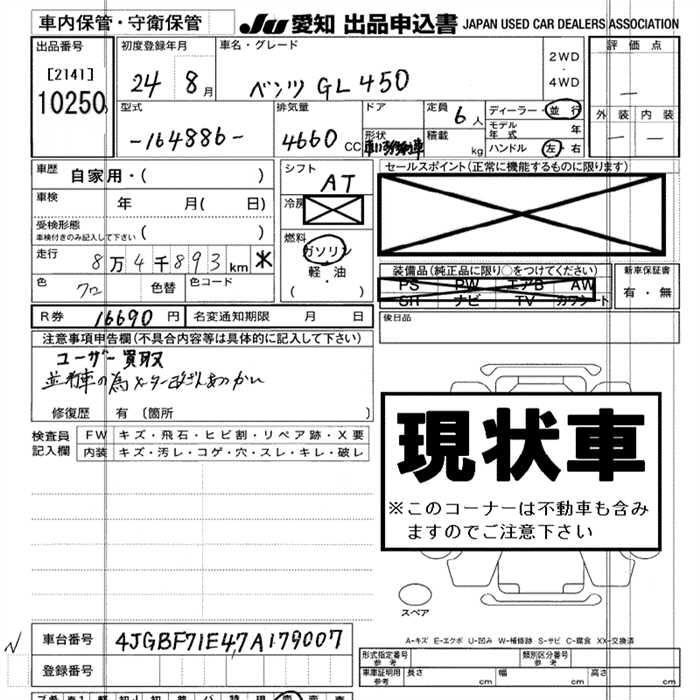 車内保管・守衛保管 JU 愛知 出品申込書 JAPAN USED CAR DEALERS ASSOCIATION
出品番号 初度登録年月 車名・グレード 評価点
[2141] 24 8月 ベンツ GL 450 2WD・4WD
10250
型式 排気量 ドア 定員 6人 ディーラー・並行 外装 内装
-164886- 4660 CC 形状 積載 kg モデル年式 年
ハンドル 左・右
車歴 自家用・( ) シフト AT セールスポイント(正常に機能するものに限ります)
車検 年 月( 日) 冷房
受検形態 車検付きのみ記入して下さい ( ) 燃料 ガソリン
走行 8万4千893km 米 軽・油 装備品(純正品に限り○をつけてください) 新車保証書
色 クロ 色替 色コード ( ・ ) PS PW エアB AW 有・無
SH ナビ TV カワシート
R券 16690円 名変通知期限 月 日 後日品
注意事項申告欄(不具合内容等は具体的に記入して下さい)
ユーザー買取
並行車の為メーター改ざんあつかい
修復歴 有 〔箇所 〕
検査員記入欄 FW キズ・飛石・ヒビ割・リペア跡・X要
内装 キズ・汚レ・コゲ・穴・スレ・キレ・破レ
現状車
※このコーナーは不動車も含みますのでご注意下さい
スペア
A-キズ E-エクボ U-凹み W-補修跡 S-サビ C-腐食 XX-交換済
車台番号 4JGBF71E47A179007
登録番号
形式指定番号 参考 類別区分番号 参考
車庫証明用 参考 長さ cm 幅 cm 高さ cm